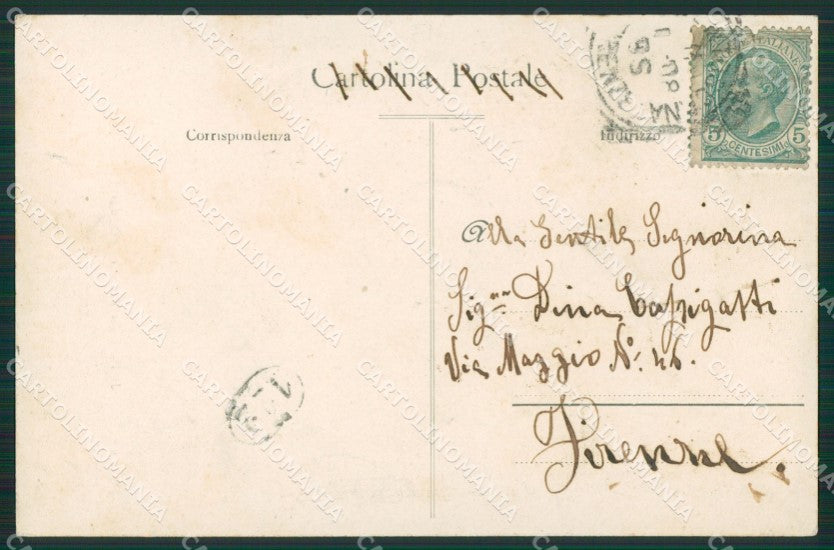 Cartolina Postale
Corrispondenza
Indirizzo
ITALIANE
5 5
CENTESIMI
Alla Gentile Signorina
Sig.na Dina
Via Maggio No: 46.
Firenze.
CARTOLINOMANIA